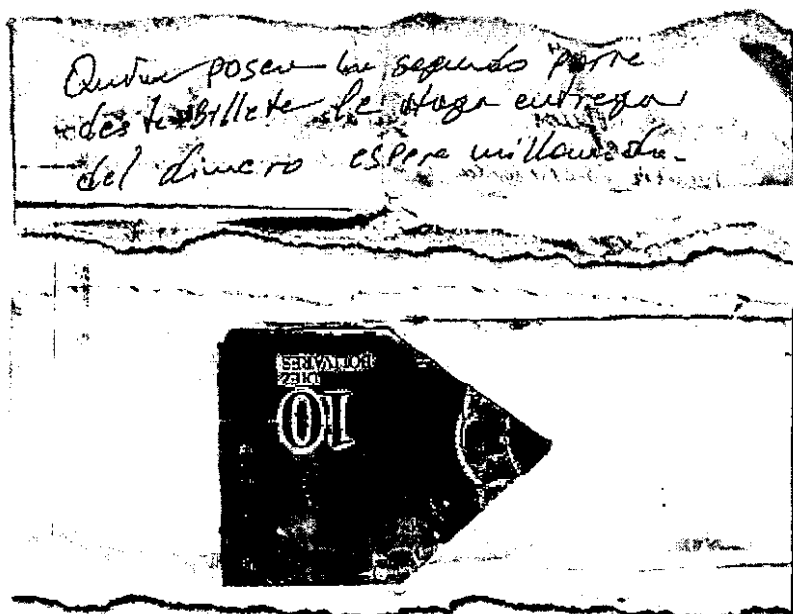 Quien posea la segunda parte
deste Billete le Haga entrega
del dinero espere millamada.-
10
DIEZ
BOLIVARES